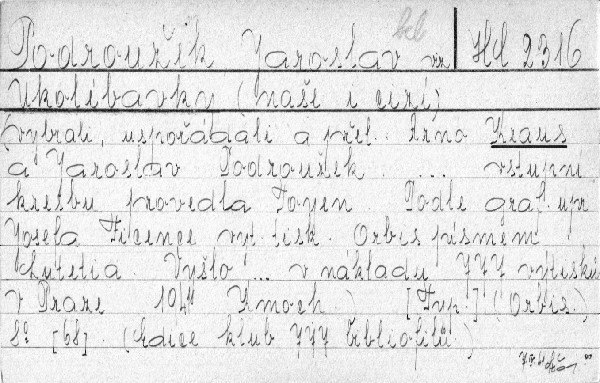 Podroužek Jaroslav vr Hd 2316
Ukolébavky (naše i cizí)
(vybrali, uspořádali a přel. Arno Kraus
a Jaroslav Podroužek. ... vstupní
kresbu provedla Toyen. Podle graf. upr
Josefa Ficence vyt. tisk. Orbis písmem
Lutetia. Vyšlo ... v nákladu 777 výtisků
V Praze Kmoch) [Typ.] (Orbis.)
8° [68]. (Edice klub 777 bibliofilů.)